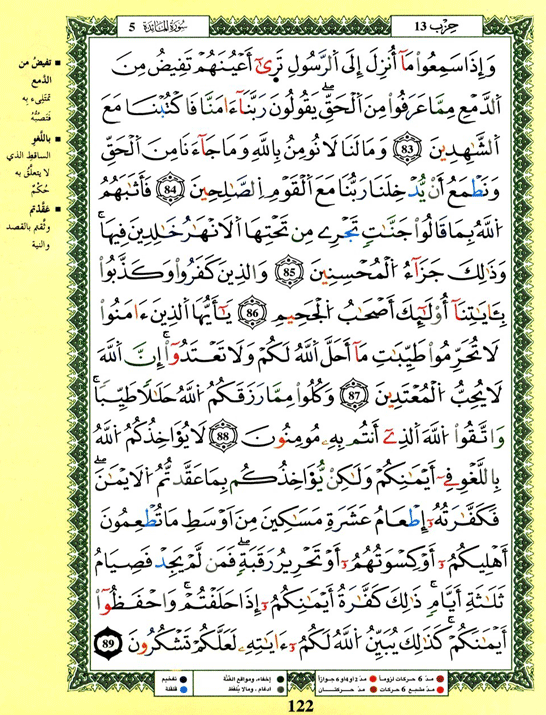 حِزْب 13
سُورَةُ المَائِدَة 5
وَإِذَا سَمِعُوا مَآ أُنزِلَ إِلَى اَلرَّسُولِ تَرَىٰٓ أَعْيُنَهُمْ تَفِيضُ مِنَ
اَلدَّمْعِ مِمَّا عَرَفُوا مِنَ اَلْحَقِّ يَقُولُونَ رَبَّنَآ ءَامَنَّا فَاكْتُبْنَا مَعَ
اَلشَّٰهِدِينَ 83 وَمَا لَنَا لَا نُومِنُ بِاللَّهِ وَمَا جَآءَنَا مِنَ اَلْحَقِّ
وَنَطْمَعُ أَنْ يُّدْخِلَنَا رَبُّنَا مَعَ اَلْقَوْمِ اِلصَّٰلِحِينَ 84 فَأَثَٰبَهُمُ
اُللَّهُ بِمَا قَالُوا جَنَّٰتٍ تَجْرِے مِن تَحْتِهَا اَلَانْهَٰرُ خَٰلِدِينَ فِيهَا
وَذَٰلِكَ جَزَآءُ اُلْمُحْسِنِينَ 85 وَالذِينَ كَفَرُوا وَكَذَّبُوا
بِـَٔايَٰتِنَآ أُوْلَٰٓئِكَ أَصْحَٰبُ اُلْجَحِيمِ 86 يَٰٓأَيُّهَا اَلذِينَ ءَامَنُوا
لَا تُحَرِّمُوا طَيِّبَٰتِ مَآ أَحَلَّ اَللَّهُ لَكُمْ وَلَا تَعْتَدُوٓا إِنَّ اَللَّهَ
لَا يُحِبُّ اُلْمُعْتَدِينَ 87 وَكُلُوا مِمَّا رَزَقَكُمُ اُللَّهُ حَلَٰلًا طَيِّبًا
وَاتَّقُوا اُللَّهَ اَلذِےٓ أَنتُم بِهِۦ مُومِنُونَ 88 لَا يُؤَاخِذُكُمُ اُللَّهُ
بِاللَّغْوِ فِےٓ أَيْمَٰنِكُمْ وَلَٰكِنْ يُّؤَاخِذُكُم بِمَا عَقَّدتُّمُ اُلَايْمَٰنَ
فَكَفَّٰرَتُهُۥٓ إِطْعَامُ عَشَرَةِ مَسَٰكِينَ مِنَ اَوْسَطِ مَا تُطْعِمُونَ
أَهْلِيكُمُۥٓ أَوْ كِسْوَتُهُمُۥٓ أَوْ تَحْرِيرُ رَقَبَةٍ فَمَن لَّمْ يَجِدْ فَصِيَامُ
ثَلَٰثَةِ أَيَّامٍ ذَٰلِكَ كَفَّٰرَةُ أَيْمَٰنِكُمُۥٓ إِذَا حَلَفْتُمْ وَاحْفَظُوٓا
أَيْمَٰنَكُمْ كَذَٰلِكَ يُبَيِّنُ اُللَّهُ لَكُمُۥٓ ءَايَٰتِهِۦ لَعَلَّكُمْ تَشْكُرُونَ 89
تفيضُ من
الدّمع
تمتلئ به
فتصبّه
باللّغو
الساقط الذي
لا يتعلّق به
حُكمٌ
عقّدتم
وثّقتم بالقصد
والنية
مدّ 6 حركات لزوماً
مدّ 2 أو 4 أو 6 جوازاً
إخفاء، ومواقع الغُنَّة
تفخيم
مدّ مشبع 6 حركات
مدّ حركتـان
ادغام، وما لا يُلفظ
قلقلة
122